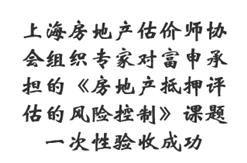 上海房地产估价师协
会组织专家对富申承
担的《房地产抵押评
估的风险控制》课题
一次性验收成功